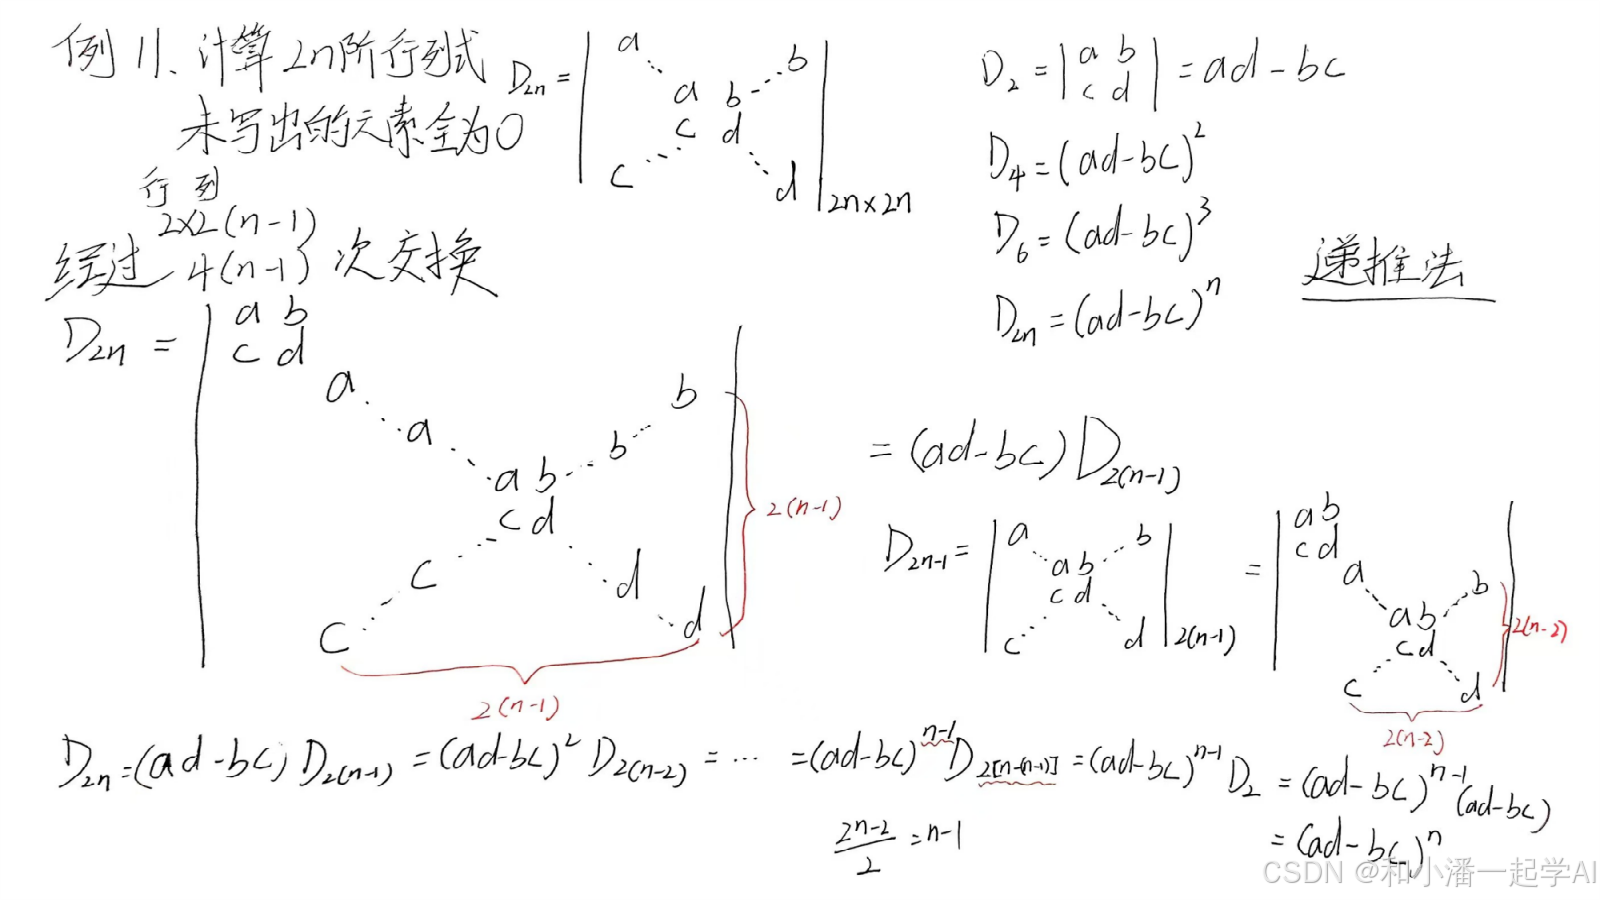 例11. 计算2n阶行列式
未写出的元素全为0
D_{2n} =
a b
a b
c d
c d
2n×2n
D_2 = | a b | = ad-bc
c d
D_4 = (ad-bc)^2
D_6 = (ad-bc)^3
D_{2n} = (ad-bc)^n
递推法
行 列
2×2(n-1)
经过 4(n-1) 次交换
D_{2n} =
a b
c d
a b
a b
a b
c d
c d
c d
2(n-1)
2(n-1)
= (ad-bc) D_{2(n-1)}
D_{2n-1} =
a b
a b
c d
c d
2(n-1)
=
a b
c d
a b
a b
c d
c d
2(n-2)
2(n-2)
D_{2n} = (ad-bc) D_{2(n-1)} = (ad-bc)^2 D_{2(n-2)} = ··· = (ad-bc)^{n-1} D_{2[n-(n-1)]} = (ad-bc)^{n-1} D_2 = (ad-bc)^{n-1} (ad-bc)
\frac{2n-2}{2} = n-1
= (ad-bc)^n
CSDN @和小潘一起学AI